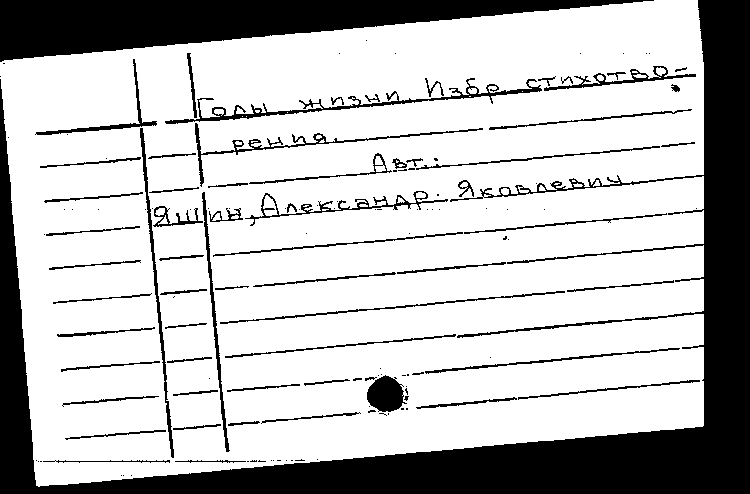 Годы жизни. Избр. стихотво-
рения.
Авт.:
Яшин, Александр Яковлевич.